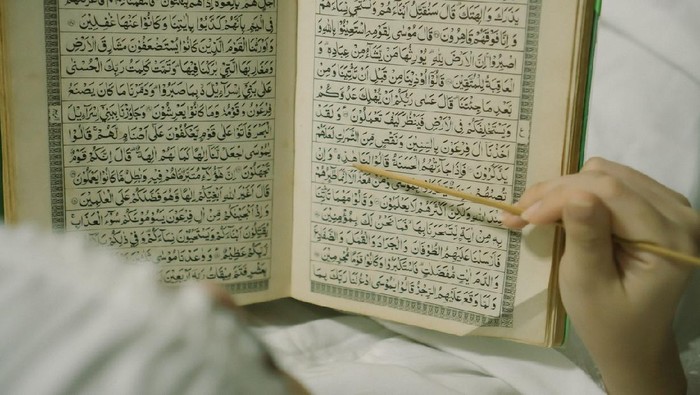 يَذَرَكَ وَاٰلِهَتَكَ قَالَ سَنُقَتِّلُ اَبْنَآءَهُمْ وَنَسْتَحْيٖ نِسَآءَهُمْ
وَاِنَّا فَوْقَهُمْ قَاهِرُوْنَ قَالَ مُوْسٰى لِقَوْمِهِ اسْتَعِيْنُوْا بِاللّٰهِ
وَاصْبِرُوْا اِنَّ الْاَرْضَ لِلّٰهِ يُوْرِثُهَا مَنْ يَّشَآءُ مِنْ عِبَادِهٖ وَ
الْعَاقِبَةُ لِلْمُتَّقِيْنَ قَالُوْٓا اُوْذِيْنَا مِنْ قَبْلِ اَنْ تَاْتِيَنَا وَمِنْۢ
بَعْدِ مَا جِئْتَنَا قَالَ عَسٰى رَبُّكُمْ اَنْ يُّهْلِكَ عَدُوَّكُمْ
وَيَسْتَخْلِفَكُمْ فِى الْاَرْضِ فَيَنْظُرَ كَيْفَ تَعْمَلُوْنَ وَلَقَدْ
اَخَذْنَآ اٰلَ فِرْعَوْنَ بِالسِّنِيْنَ وَنَقْصٍ مِّنَ الثَّمَرٰتِ لَعَلَّهُمْ
يَذَّكَّرُوْنَ فَاِذَا جَآءَتْهُمُ الْحَسَنَةُ قَالُوْا لَنَا هٰذِهٖ وَاِنْ
تُصِبْهُمْ سَيِّئَةٌ يَّطَّيَّرُوْا بِمُوْسٰى وَمَنْ مَّعَهٗ اَلَآ اِنَّمَا طٰٓئِرُهُمْ
عِنْدَ اللّٰهِ وَلٰكِنَّ اَكْثَرَهُمْ لَا يَعْلَمُوْنَ وَقَالُوْا مَهْمَا تَاْتِنَا
بِهٖ مِنْ اٰيَةٍ لِّتَسْحَرَنَا بِهَا فَمَا نَحْنُ لَكَ بِمُؤْمِنِيْنَ
فَاَرْسَلْنَا عَلَيْهِمُ الطُّوْفَانَ وَالْجَرَادَ وَالْقُمَّلَ وَالضَّفَادِعَ
وَالدَّمَ اٰيٰتٍ مُّفَصَّلٰتٍ فَاسْتَكْبَرُوْا وَكَانُوْا قَوْمًا مُّجْرِمِيْنَ
وَلَمَّا وَقَعَ عَلَيْهِمُ الرِّجْزُ قَالُوْا يٰمُوْسَى ادْعُ لَنَا رَبَّكَ بِمَا
اَجَلٍ هُمْ بٰلِغُوْهُ اِذَا هُمْ يَنْكُثُوْنَ فَانْتَقَمْنَا مِنْهُمْ فَاَغْرَقْنٰهُمْ
فِى الْيَمِّ بِاَنَّهُمْ كَذَّبُوْا بِاٰيٰتِنَا وَكَانُوْا عَنْهَا غٰفِلِيْنَ
وَاَوْرَثْنَا الْقَوْمَ الَّذِيْنَ كَانُوْا يُسْتَضْعَفُوْنَ مَشَارِقَ الْاَرْضِ
وَمَغَارِبَهَا الَّتِيْ بٰرَكْنَا فِيْهَا وَتَمَّتْ كَلِمَتُ رَبِّكَ الْحُسْنٰى
عَلٰى بَنِيْٓ اِسْرَآءِيْلَ بِمَا صَبَرُوْا وَدَمَّرْنَا مَا كَانَ يَصْنَعُ
فِرْعَوْنُ وَقَوْمُهٗ وَمَا كَانُوْا يَعْرِشُوْنَ وَجَاوَزْنَا بِبَنِيْٓ اِسْرَآءِيْلَ
الْبَحْرَ فَاَتَوْا عَلٰى قَوْمٍ يَّعْكُفُوْنَ عَلٰٓى اَصْنَامٍ لَّهُمْ قَالُوْا
يٰمُوْسَى اجْعَلْ لَّنَآ اِلٰهًا كَمَا لَهُمْ اٰلِهَةٌ قَالَ اِنَّكُمْ قَوْمٌ
تَجْهَلُوْنَ اِنَّ هٰٓؤُلَآءِ مُتَبَّرٌ مَّا هُمْ فِيْهِ وَبٰطِلٌ مَّا كَانُوْا يَعْمَلُوْنَ
قَالَ اَغَيْرَ اللّٰهِ اَبْغِيْكُمْ اِلٰهًا وَّهُوَ فَضَّلَكُمْ عَلَى الْعٰلَمِيْنَ
وَاِذْ اَنْجَيْنٰكُمْ مِّنْ اٰلِ فِرْعَوْنَ يَسُوْمُوْنَكُمْ سُوْٓءَ الْعَذَابِ
يُقَتِّلُوْنَ اَبْنَآءَكُمْ وَيَسْتَحْيُوْنَ نِسَآءَكُمْ وَفِيْ ذٰلِكُمْ بَلَآءٌ
رَّبِّكُمْ عَظِيْمٌ وَوٰعَدْنَا مُوْسٰى
فَتَمَّ مِيْقَاتُ رَبِّهٖٓ اَرْبَعِيْنَ